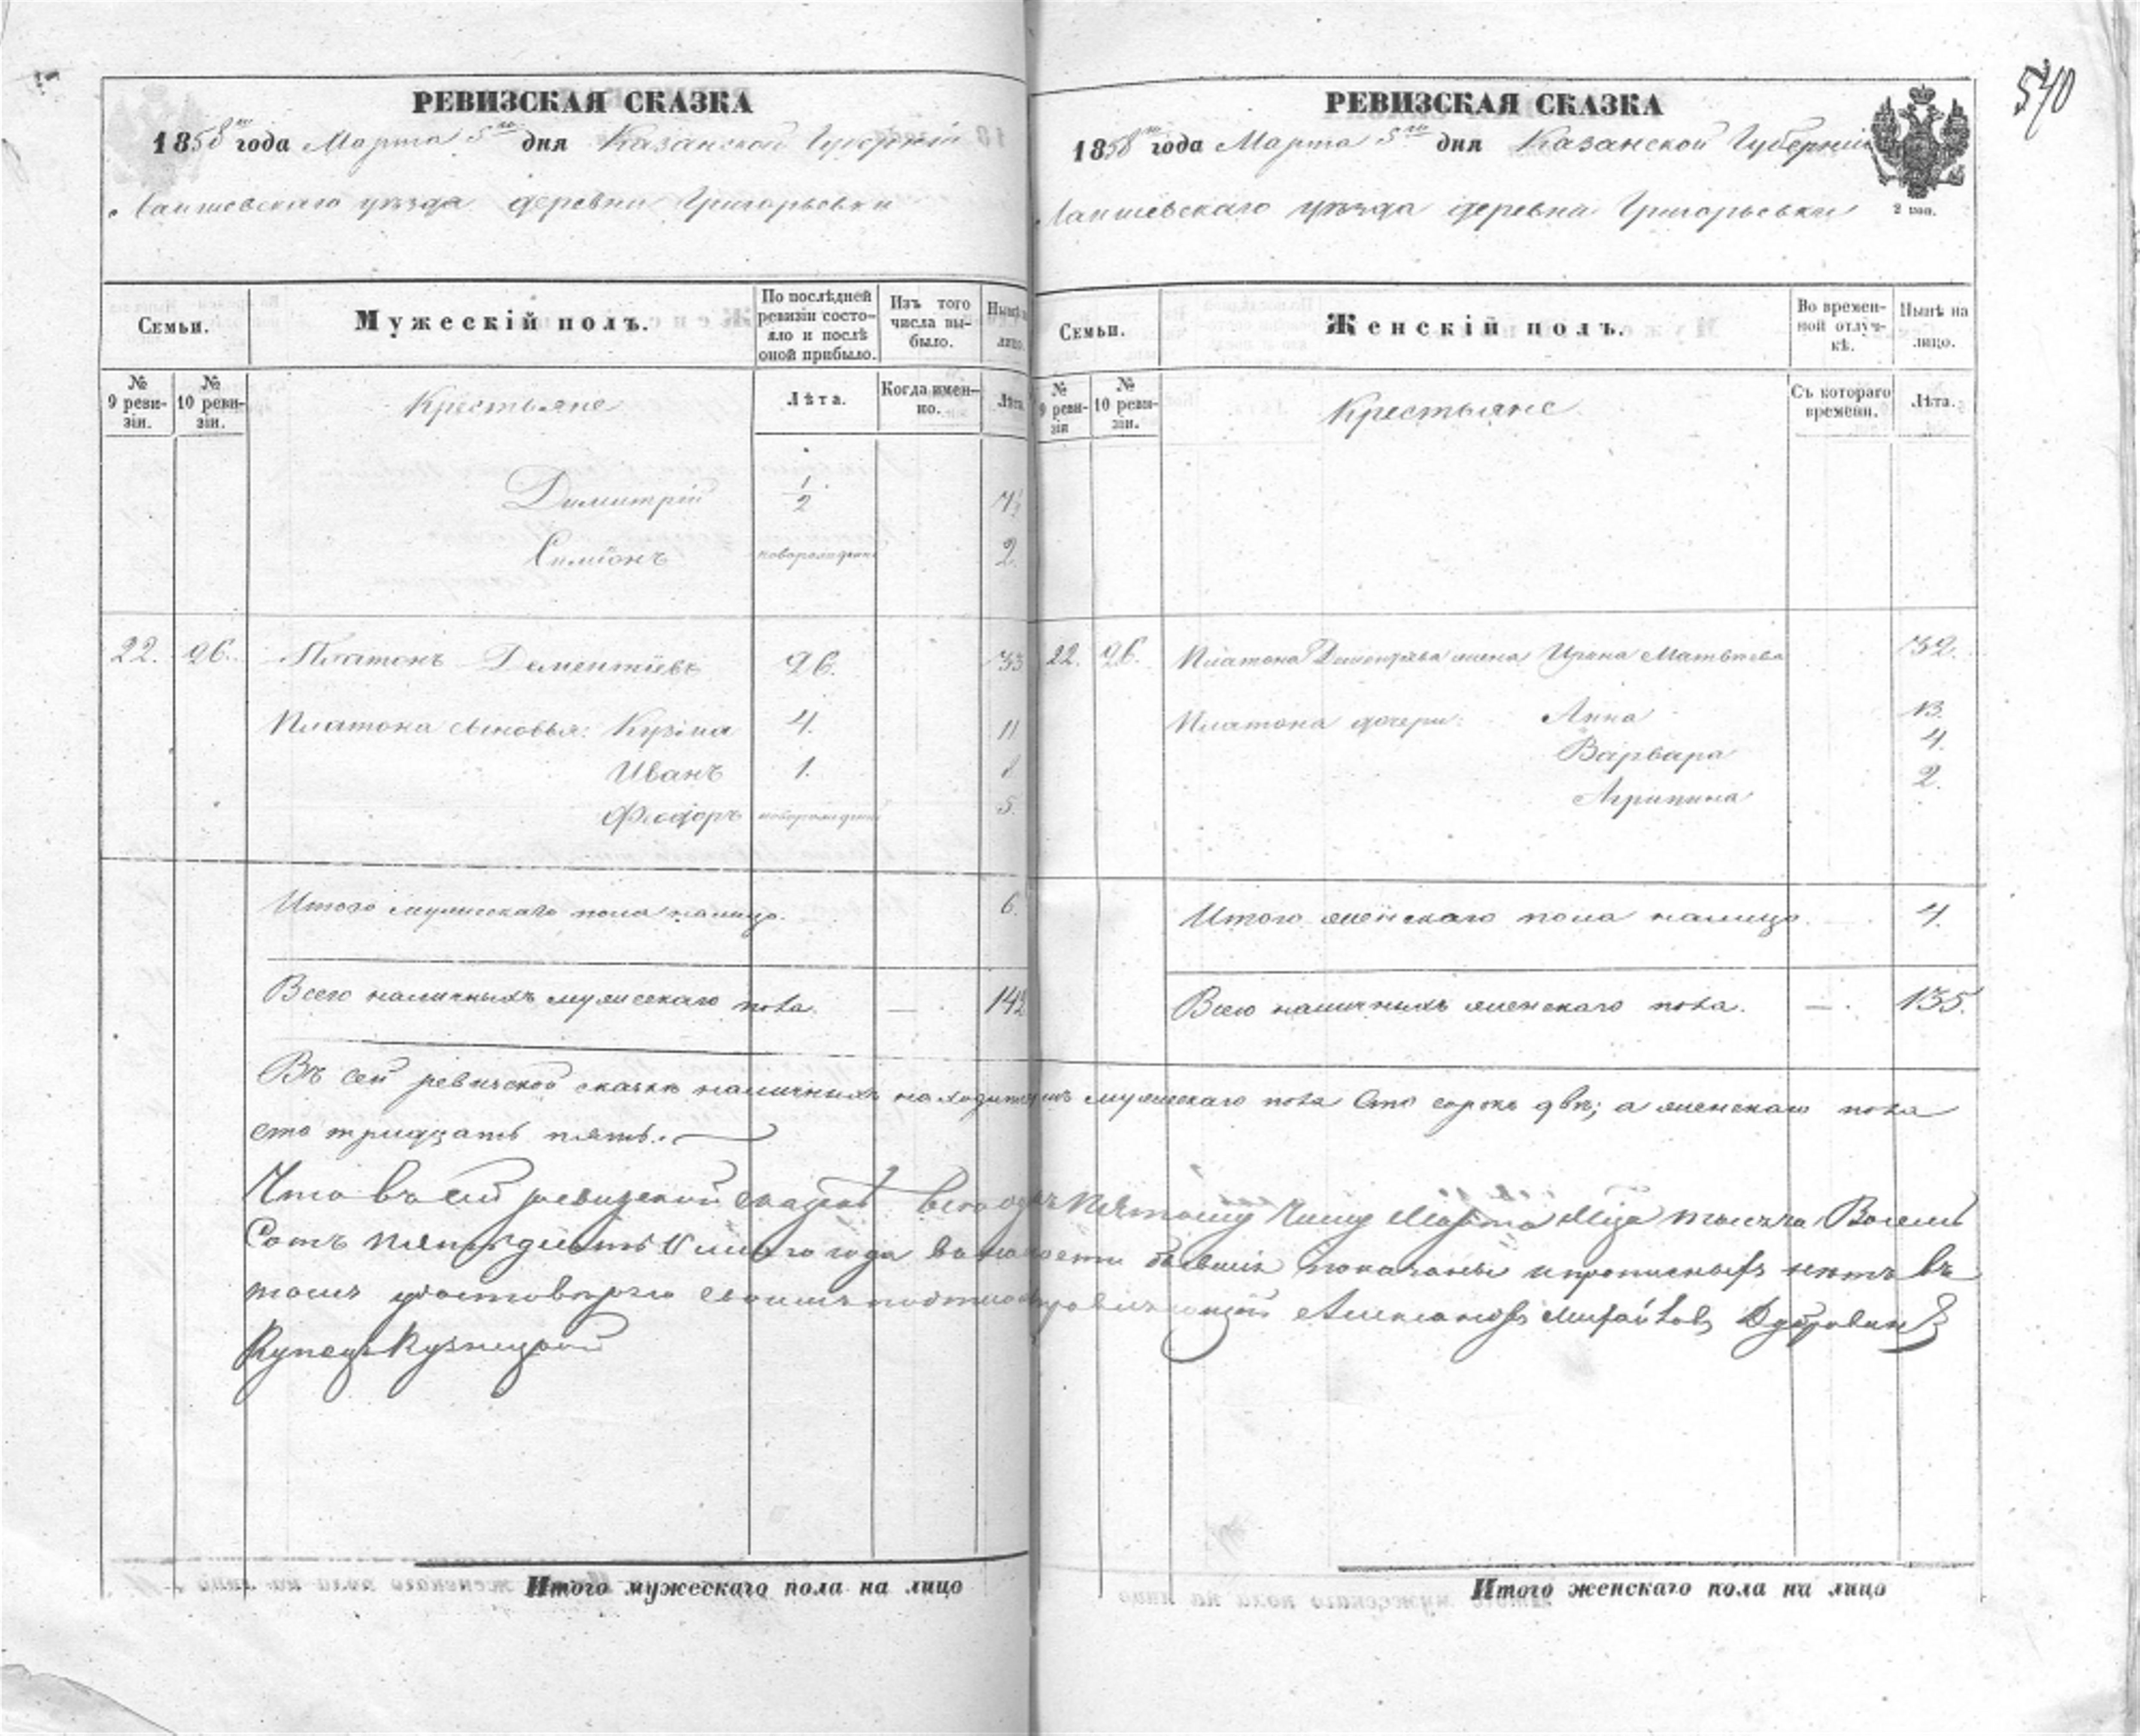 540
РЕВИЗСКАЯ СКАЗКА
1858го года Марта 5го дня Казанской Губернiи
Лаишевскаго уѣзда деревни Григорьевки
Семьи.
Мужескiй полъ.
По послѣдней ревизiи состояло и послѣ оной прибыло.
Изъ того числа выбыло.
Нынѣ на лицо.
№ 9 ревизiи.
№ 10 ревизiи.
Крестьяне
Лѣта.
Когда именно.
Лѣта
Димитрiй 1/2 7 1/2
Симiонъ новорожден 2.
22. 26. Платонъ Дементiевъ 26. 33
Платона сыновья: Кузма 4. 11
Иванъ 1. 8
Феодоръ новорожден 5.
Итого мужескаго пола налицо. 6.
Всего наличныхъ мужескаго пола. — 142
РЕВИЗСКАЯ СКАЗКА
1858го года Марта 5го дня Казанской Губернiи
2 коп.
Лаишевскаго уѣзда деревни Григорьевки
Семьи.
Женскiй полъ.
Во временной отлучкѣ.
Нынѣ на лицо.
№ 9 ревизiи
№ 10 ревизiи.
Крестьяне
Съ котораго времени.
Лѣта.
22. 26. Платона Дементьева жена Ирина Матвѣева 32.
Платона дочери: Анна 13.
Варвара 4.
Агрипина 2.
Итого женскаго пола налицо. 4.
Всего наличныхъ женскаго пола. — 135.
Въ сей ревизской сказкѣ наличныхъ находится мужескаго пола сто сорокъ двѣ; а женскаго пола
сто тридцать пять.
Что въ сей ревизской сказкѣ всѣ по пятому числу Марта Мца тысяча Восемь
Сотъ пятьдесятъ осьмаго года бывшiя показаны и прописныхъ нѣтъ въ
томъ удостовѣряю своимъ подписомъ Александръ Михайловъ
Купецъ Кузнецкой
Итого мужескаго пола на лицо
Итого женскаго пола на лицо